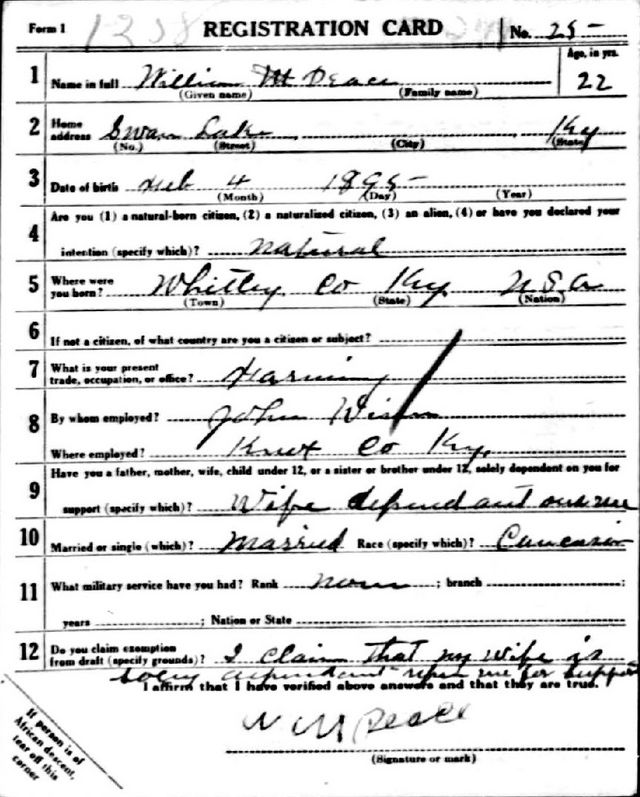 Form 1 1258 REGISTRATION CARD No. 25-
Age, in yrs.
1 Name in full William M Peace 22
(Given name) (Family name)
2 Home address Swan Lake Ky
(No.) (Street) (City) (State)
3 Date of birth Feb 4 1895
(Month) (Day) (Year)
4 Are you (1) a natural-born citizen, (2) a naturalized citizen, (3) an alien, (4) or have you declared your
intention (specify which)? natural
5 Where were you born? Whitley Co Ky. U.S.A
(Town) (State) (Nation)
6 If not a citizen, of what country are you a citizen or subject?
7 What is your present trade, occupation, or office? Farming
8 By whom employed? John
Where employed? Knox Co Ky.
9 Have you a father, mother, wife, child under 12, or a sister or brother under 12, solely dependent on you for
support (specify which)? Wife dependant me
10 Married or single (which)? Married Race (specify which)? Caucasian
11 What military service have you had? Rank none ; branch ;
years ; Nation or State
12 Do you claim exemption from draft (specify grounds)? I claim that my wife is
dependant upon me for support
I affirm that I have verified above answers and that they are true.
W M Peace
(Signature or mark)
If person is of
African descent,
tear off this
corner